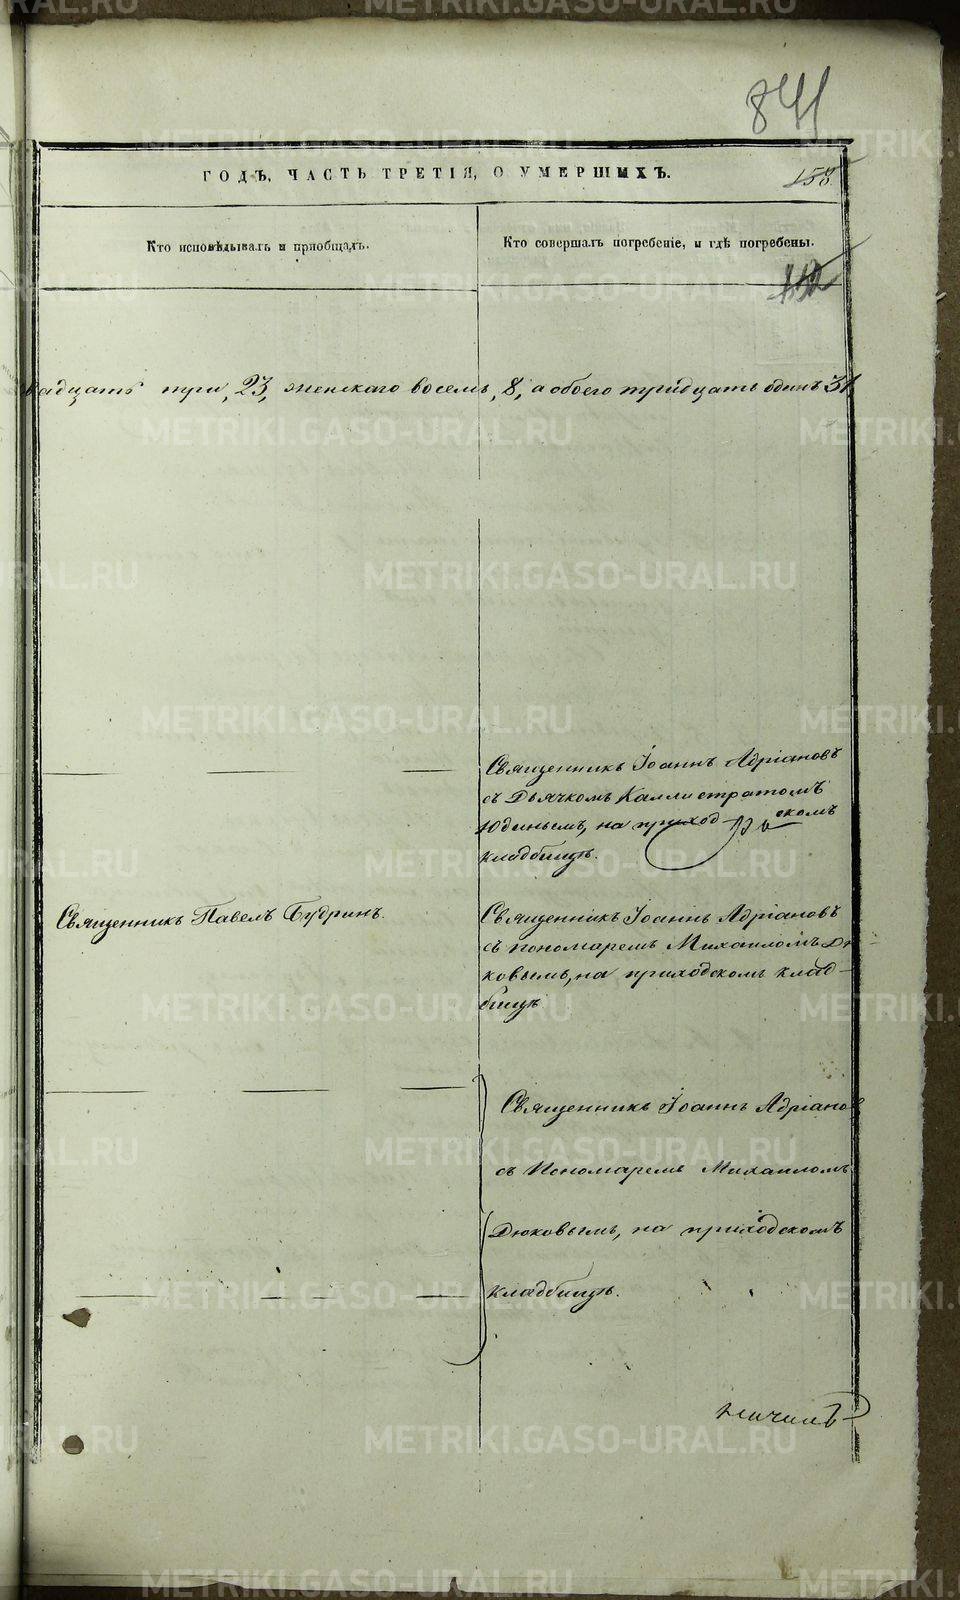 841
ГОДЪ, ЧАСТЬ ТРЕТІЯ, О УМЕРШИХЪ.
158.
Кто исповѣдывалъ и пріобщалъ.
Кто совершалъ погребеніе, и гдѣ погребены.
вадцать три, 23, женскаго восемь, 8, а обоего тридцать одинъ 31
Священникъ Іоаннъ Адріановъ
съ Дьячкомъ Каллистратомъ
Юдинымъ, на приходскомъ
кладбищѣ.
Священникъ Павелъ Будринъ.
Священникъ Іоаннъ Адріановъ
съ пономаремъ Михаиломъ Дю
ковымъ, на приходскомъ клад-
бищѣ
Священникъ Іоаннъ Адріановъ
съ Пономаремъ Михаиломъ
Дюковымъ, на приходскомъ
кладбищѣ.
METRIKI.GASO-URAL.RU